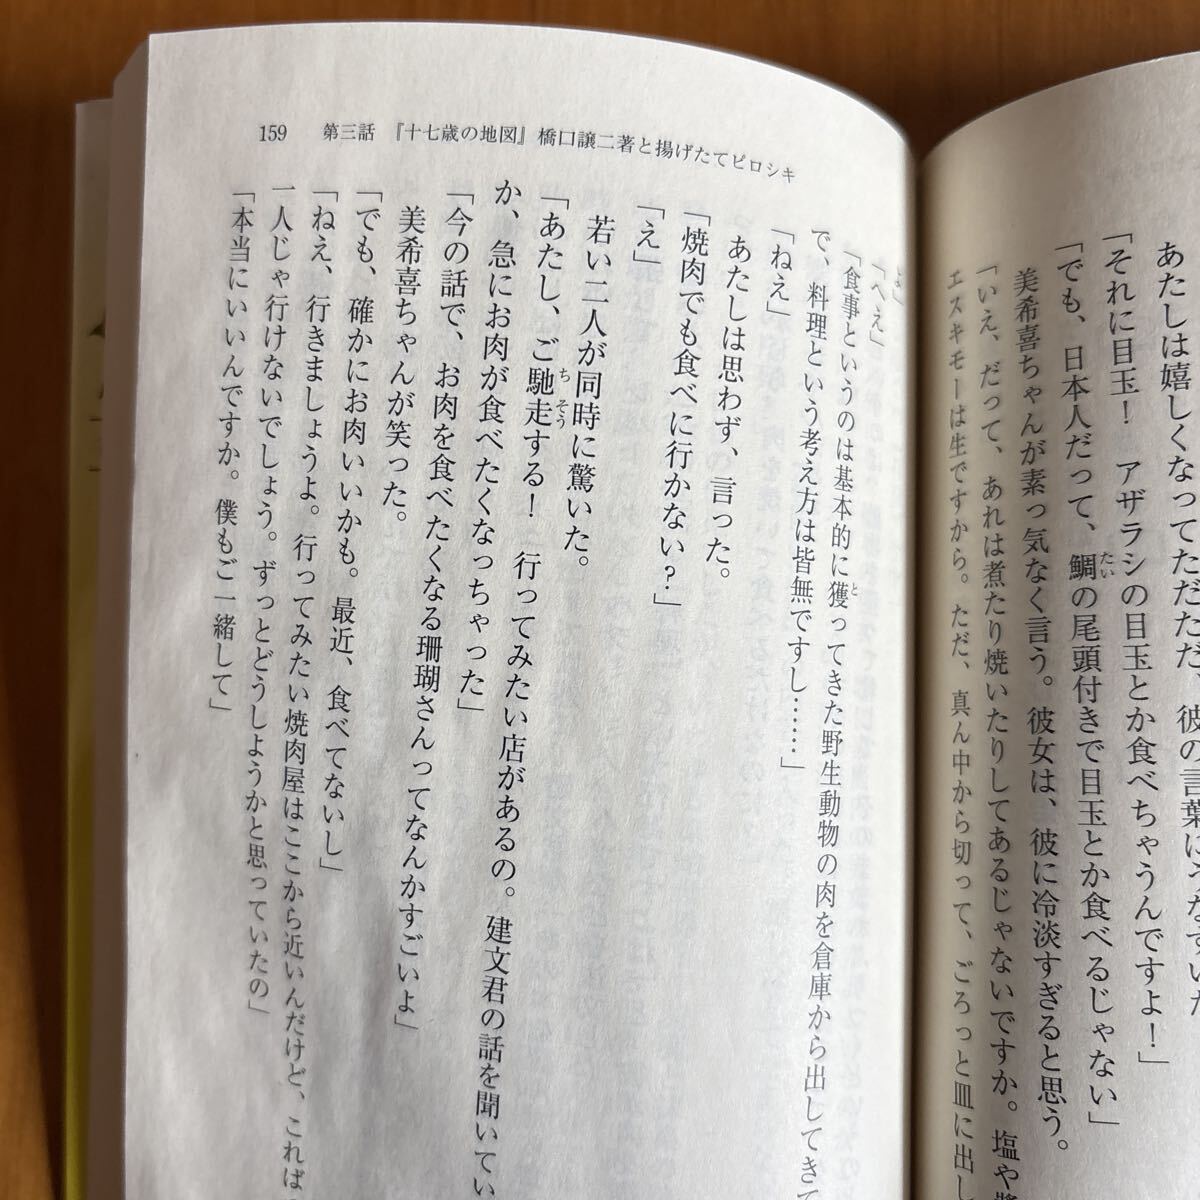 159　第三話　『十七歳の地図』橋口譲二著と揚げたてピロシキ
あたしは嬉しくなってただただ、彼の言葉にうなずいた
「それに目玉！　アザラシの目玉とか食べちゃうんですよ！」
「でも、日本人だって、鯛の尾頭付きで目玉とか食べるじゃない」
美希喜ちゃんが素っ気なく言う。彼女は、彼に冷淡すぎると思う。
「いえ、だって、あれは煮たり焼いたりしてあるじゃないですか。塩や醬
エスキモーは生ですから。ただ、真ん中から切って、ごろっと皿に出し
よ」
「へえ」
「食事というのは基本的に獲ってきた野生動物の肉を倉庫から出してきて
で、料理という考え方は皆無ですし……」
「ねえ」
あたしは思わず、言った。
「焼肉でも食べに行かない？」
「え」
若い二人が同時に驚いた。
「あたし、ご馳走する！　行ってみたい店があるの。建文君の話を聞いてい
か、急にお肉が食べたくなっちゃった」
「今の話で、お肉を食べたくなる珊瑚さんってなんかすごいよ」
美希喜ちゃんが笑った。
「でも、確かにお肉いいかも。最近、食べてないし」
「ねえ、行きましょうよ。行ってみたい焼肉屋はここから近いんだけど、こればっ
一人じゃ行けないでしょう。ずっとどうしようかと思っていたの」
「本当にいいんですか。僕もご一緒して」